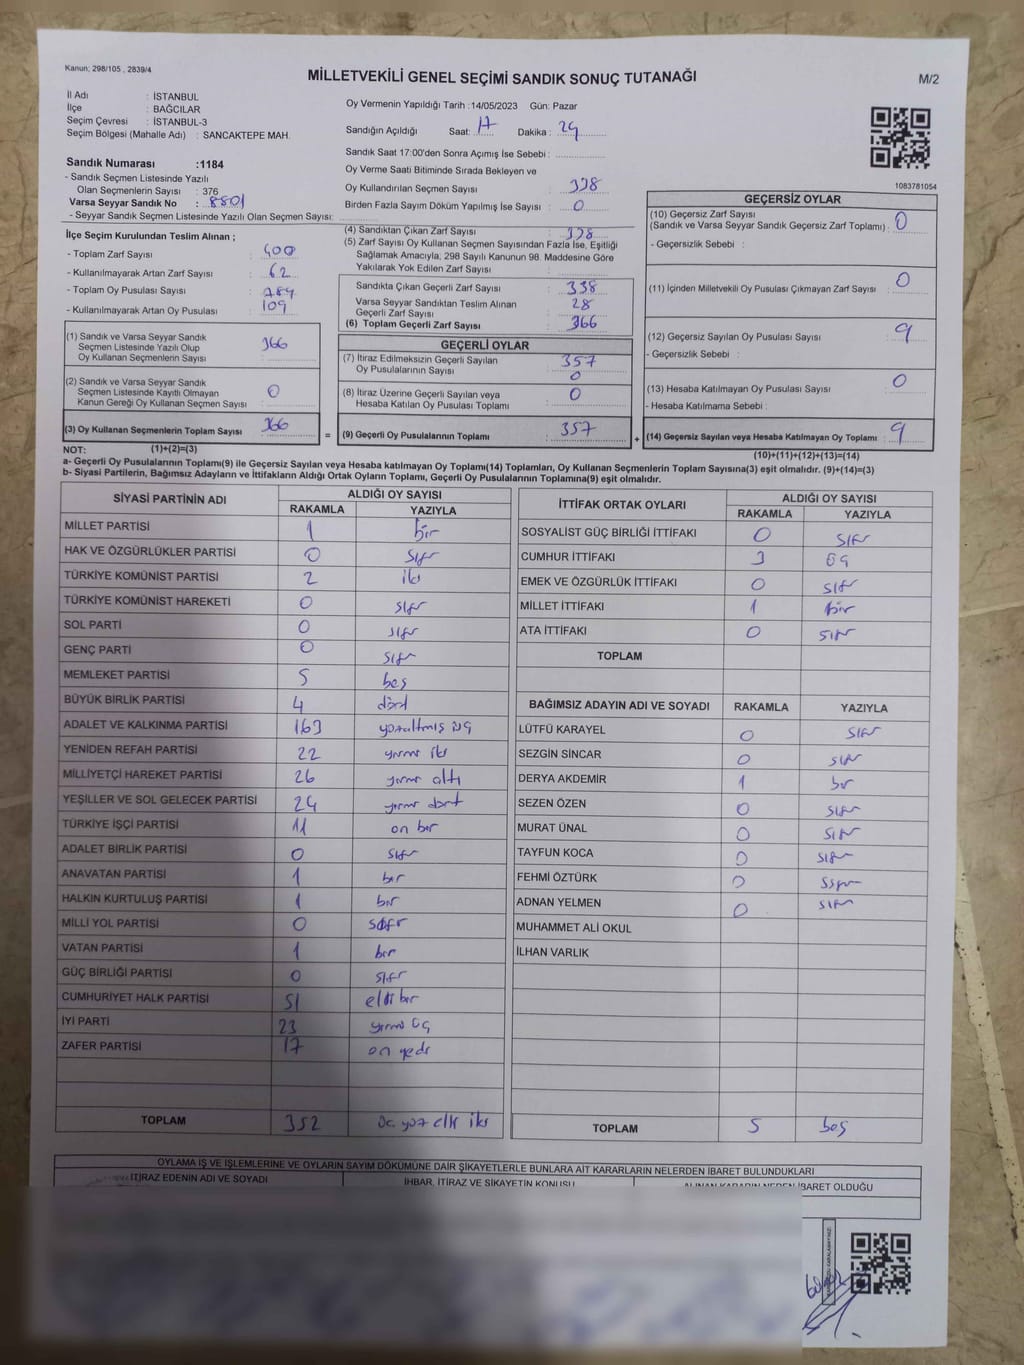 Kanun: 298/105 , 2839/4
MİLLETVEKİLİ GENEL SEÇİMİ SANDIK SONUÇ TUTANAĞI
M/2
İl Adı : İSTANBUL
İlçe : BAĞCILAR
Seçim Çevresi : İSTANBUL-3
Seçim Bölgesi (Mahalle Adı) : SANCAKTEPE MAH.
Sandık Numarası :1184
- Sandık Seçmen Listesinde Yazılı
Olan Seçmenlerin Sayısı : 376
Varsa Seyyar Sandık No : 8801
- Seyyar Sandık Seçmen Listesinde Yazılı Olan Seçmen Sayısı:
Oy Vermenin Yapıldığı Tarih :14/05/2023 Gün: Pazar
Sandığın Açıldığı Saat: 17 Dakika : 29
Sandık Saat 17:00'den Sonra Açımış İse Sebebi :
Oy Verme Saati Bitiminde Sırada Bekleyen ve
Oy Kullandırılan Seçmen Sayısı : 338
Birden Fazla Sayım Döküm Yapılmış İse Sayısı : 0
1083781054
İlçe Seçim Kurulundan Teslim Alınan ;
- Toplam Zarf Sayısı : 400
- Kullanılmayarak Artan Zarf Sayısı : 62
- Toplam Oy Pusulası Sayısı :
- Kullanılmayarak Artan Oy Pusulası : 109
(1) Sandık ve Varsa Seyyar Sandık
Seçmen Listesinde Yazılı Olup
Oy Kullanan Seçmenlerin Sayısı : 366
(2) Sandık ve Varsa Seyyar Sandık
Seçmen Listesinde Kayıtlı Olmayan
Kanun Gereği Oy Kullanan Seçmen Sayısı : 0
(3) Oy Kullanan Seçmenlerin Toplam Sayısı : 366
(1)+(2)=(3)
(4) Sandıktan Çıkan Zarf Sayısı : 338
(5) Zarf Sayısı Oy Kullanan Seçmen Sayısından Fazla İse, Eşitliği
Sağlamak Amacıyla, 298 Sayılı Kanunun 98. Maddesine Göre
Yakılarak Yok Edilen Zarf Sayısı :
Sandıkta Çıkan Geçerli Zarf Sayısı : 338
Varsa Seyyar Sandıktan Teslim Alınan
Geçerli Zarf Sayısı : 28
(6) Toplam Geçerli Zarf Sayısı : 366
GEÇERLİ OYLAR
(7) İtiraz Edilmeksizin Geçerli Sayılan
Oy Pusulalarının Sayısı : 357
0
(8) İtiraz Üzerine Geçerli Sayılan veya
Hesaba Katılan Oy Pusulası Toplamı : 0
= (9) Geçerli Oy Pusulalarının Toplamı : 357
GEÇERSİZ OYLAR
(10) Geçersiz Zarf Sayısı
(Sandık ve Varsa Seyyar Sandık Geçersiz Zarf Toplamı) : 0
- Geçersizlik Sebebi :
(11) İçinden Milletvekili Oy Pusulası Çıkmayan Zarf Sayısı : 0
(12) Geçersiz Sayılan Oy Pusulası Sayısı : 9
- Geçersizlik Sebebi :
(13) Hesaba Katılmayan Oy Pusulası Sayısı : 0
- Hesaba Katılmama Sebebi :
+ (14) Geçersiz Sayılan veya Hesaba Katılmayan Oy Toplamı : 9
(10)+(11)+(12)+(13)=(14)
NOT:
a- Geçerli Oy Pusulalarının Toplamı(9) ile Geçersiz Sayılan veya Hesaba katılmayan Oy Toplamı(14) Toplamları, Oy Kullanan Seçmenlerin Toplam Sayısına(3) eşit olmalıdır. (9)+(14)=(3)
b- Siyasi Partilerin, Bağımsız Adayların ve İttifakların Aldığı Ortak Oyların Toplamı, Geçerli Oy Pusulalarının Toplamına(9) eşit olmalıdır.
SİYASİ PARTİNİN ADI ALDIĞI OY SAYISI
RAKAMLA YAZIYLA
MİLLET PARTİSİ 1 bir
HAK VE ÖZGÜRLÜKLER PARTİSİ 0 sıfır
TÜRKİYE KOMÜNİST PARTİSİ 2 iki
TÜRKİYE KOMÜNİST HAREKETİ 0 sıfır
SOL PARTİ 0 sıfır
GENÇ PARTİ 0 sıfır
MEMLEKET PARTİSİ 5 beş
BÜYÜK BİRLİK PARTİSİ 4 dört
ADALET VE KALKINMA PARTİSİ 163 yüzaltmış üç
YENİDEN REFAH PARTİSİ 22 yirmi iki
MİLLİYETÇİ HAREKET PARTİSİ 26 yirmi altı
YEŞİLLER VE SOL GELECEK PARTİSİ 24 yirmi dört
TÜRKİYE İŞÇİ PARTİSİ 11 on bir
ADALET BİRLİK PARTİSİ 0 sıfır
ANAVATAN PARTİSİ 1 bir
HALKIN KURTULUŞ PARTİSİ 1 bir
MİLLİ YOL PARTİSİ 0 sıfır
VATAN PARTİSİ 1 bir
GÜÇ BİRLİĞİ PARTİSİ 0 sıfır
CUMHURİYET HALK PARTİSİ 51 elli bir
İYİ PARTİ 23 yirmi üç
ZAFER PARTİSİ 17 on yedi
TOPLAM 352 üç yüz elli iki
İTTİFAK ORTAK OYLARI ALDIĞI OY SAYISI
RAKAMLA YAZIYLA
SOSYALİST GÜÇ BİRLİĞİ İTTİFAKI 0 sıfır
CUMHUR İTTİFAKI 3 üç
EMEK VE ÖZGÜRLÜK İTTİFAKI 0 sıfır
MİLLET İTTİFAKI 1 bir
ATA İTTİFAKI 0 sıfır
TOPLAM
BAĞIMSIZ ADAYIN ADI VE SOYADI RAKAMLA YAZIYLA
LÜTFÜ KARAYEL 0 sıfır
SEZGİN SİNCAR 0 sıfır
DERYA AKDEMİR 1 bir
SEZEN ÖZEN 0 sıfır
MURAT ÜNAL 0 sıfır
TAYFUN KOCA 0 sıfır
FEHMİ ÖZTÜRK 0
ADNAN YELMEN 0 sıfır
MUHAMMET ALİ OKUL
İLHAN VARLIK
TOPLAM 5 beş
OYLAMA İŞ VE İŞLEMLERİNE VE OYLARIN SAYIM DÖKÜMÜNE DAİR ŞİKAYETLERLE BUNLARA AİT KARARLARIN NELERDEN İBARET BULUNDUKLARI
İTİRAZ EDENİN ADI VE SOYADI İHBAR, İTİRAZ VE ŞİKAYETİN KONUSU ALINAN KARARIN NEDEN İBARET OLDUĞU